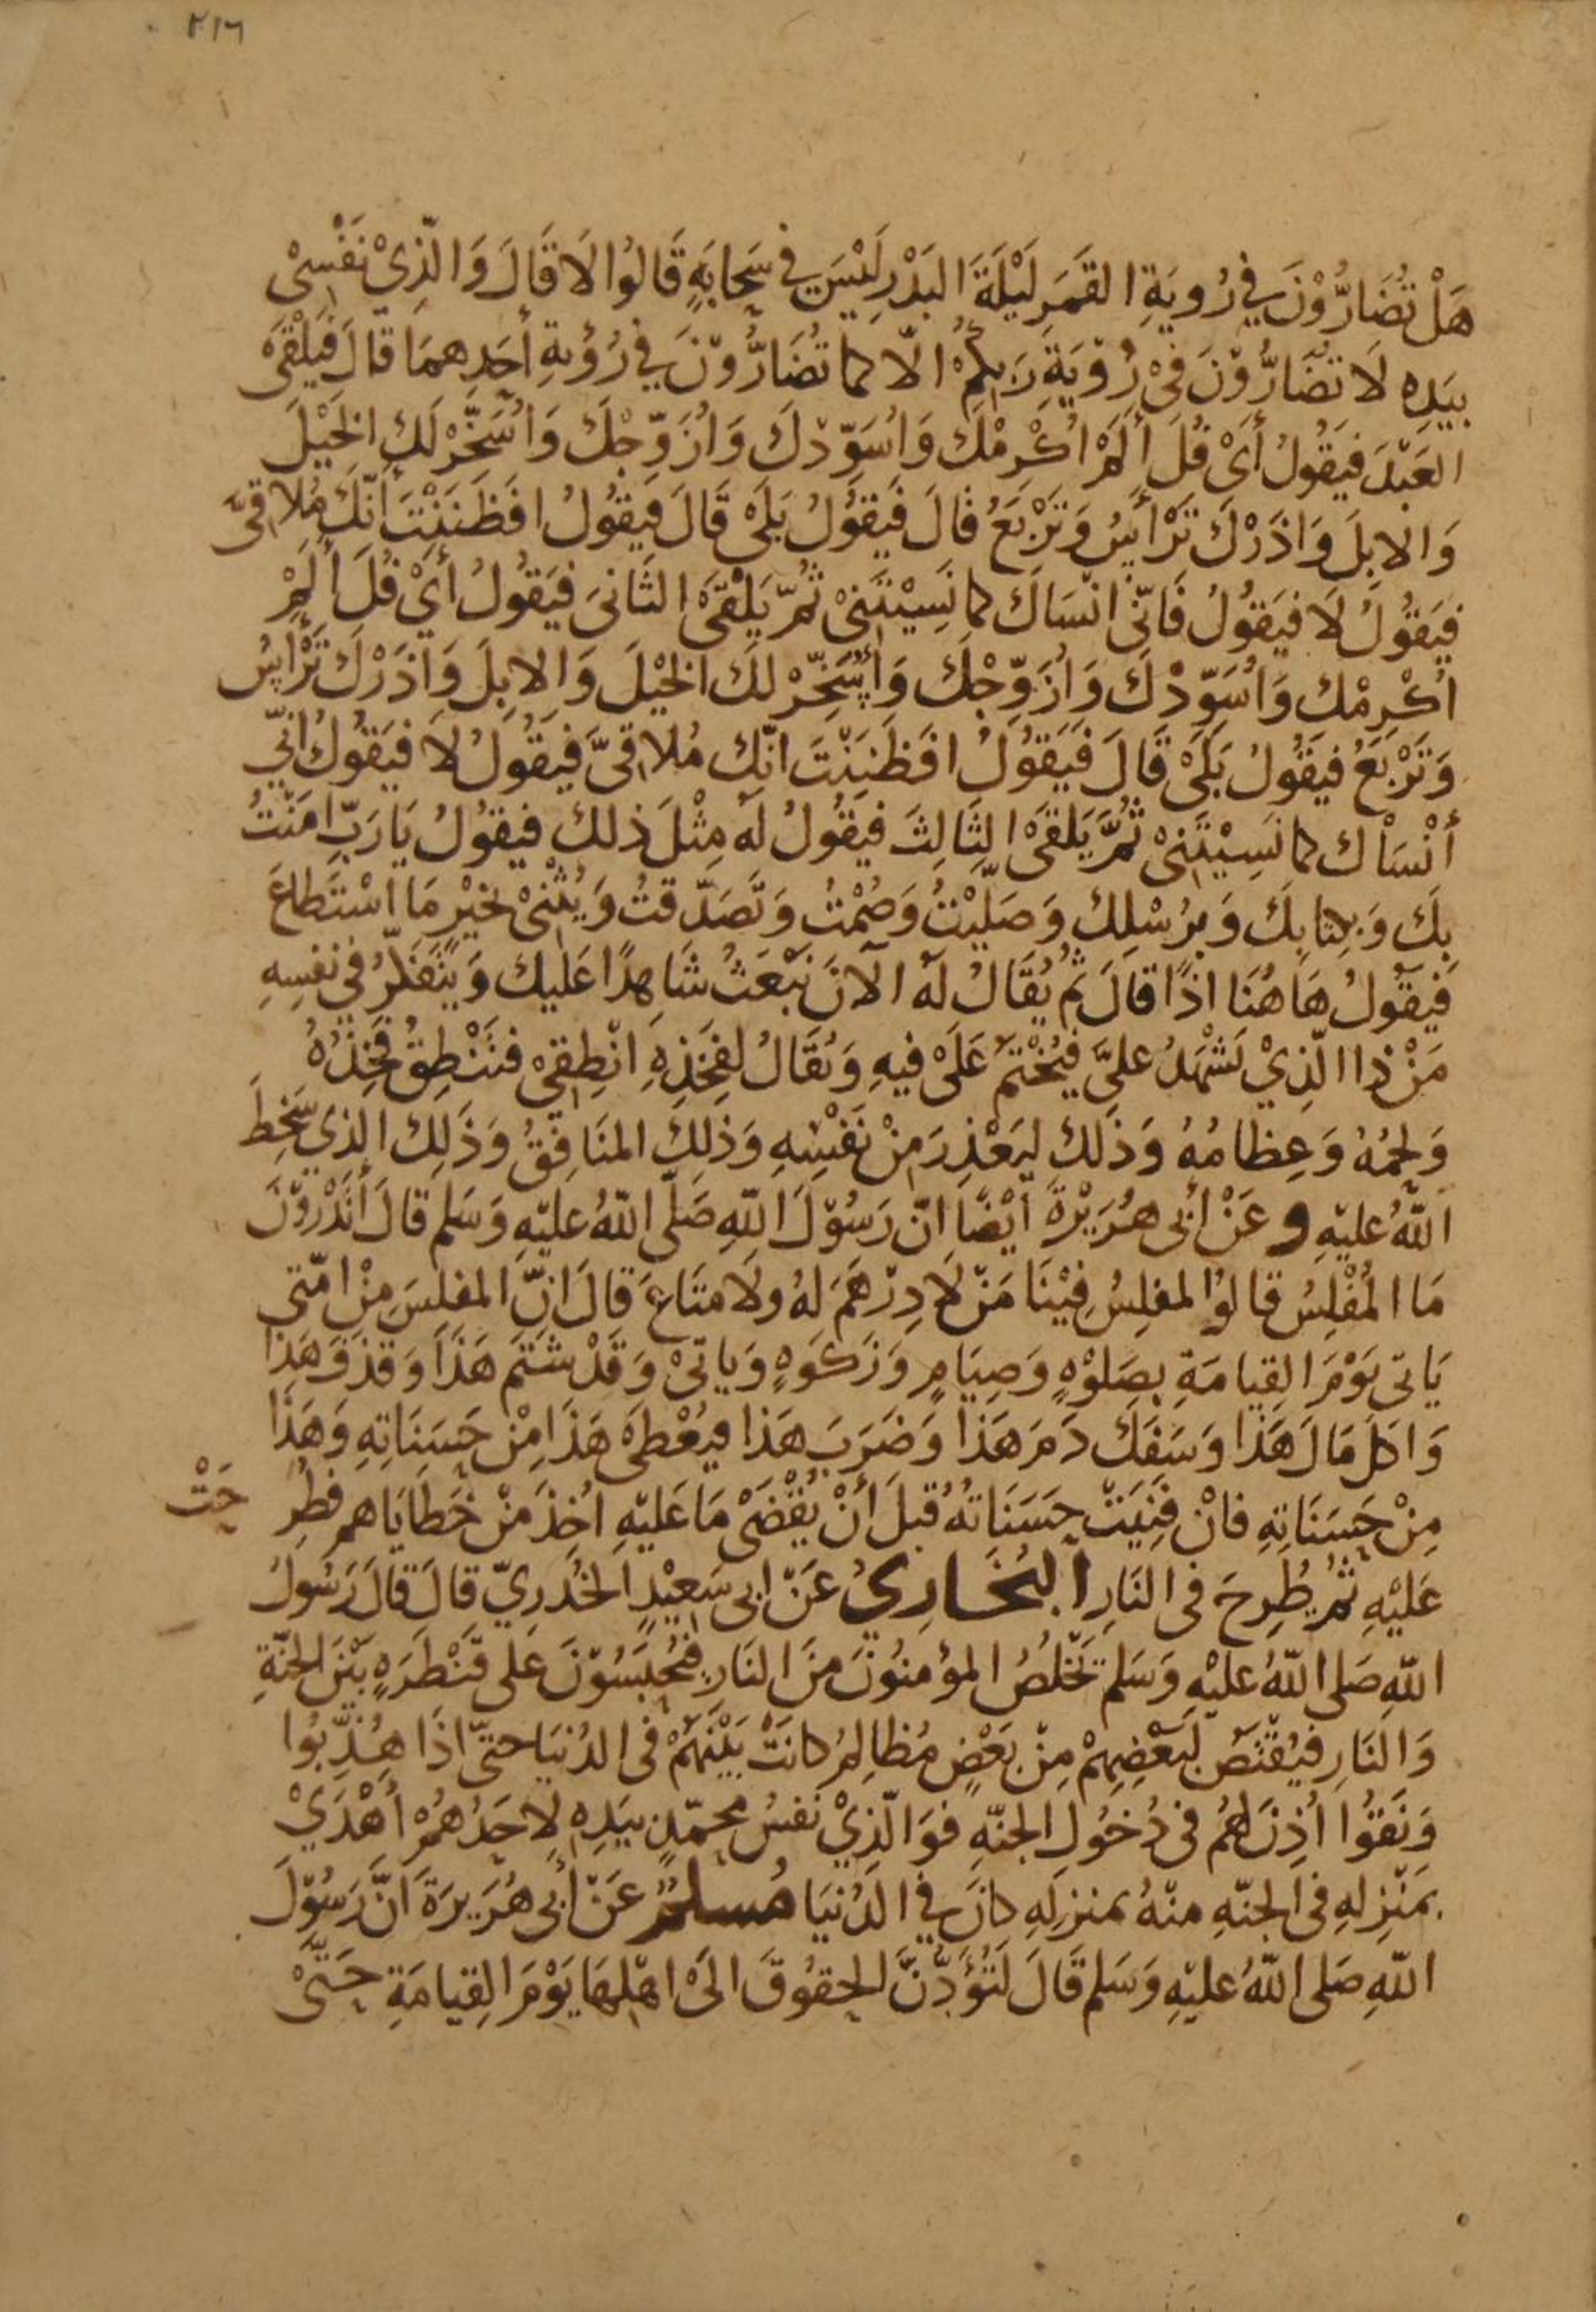 ٢١٦
هَلْ تُضَارُّوْنَ فِي رُويَةِ القَمَرِ لَيْلَةَ البَدْرِ لَيْسَ فِي سَحابَةٍ قَالُوا لَا قَالَ وَالَّذِيْ نَفْسِيْ
بيَدِهِ لَا تُضَارُّوْنَ فِيْ رُؤْيَةِ رَبِكُمْ الّا كما تُضَارُّوْنَ فِي رُؤْيةِ أحَدِهمَا قالَ فَيَلْقَىْ
العَبْدَ فيَقُولُ أىْ فُلَ ألَمْ اُكْرِمْكَ وَاُسَوِّدْكَ وَاُزَوِّجْكَ وَاُسَخِّرْ لَكَ الخيْلَ
وَالابِلَ وَاذَرْكَ تَرْأسُ وَتَرْبَعُ قالَ فَيَقُولُ بَلَىْ قَالَ فَيقُولُ افَظَنَنْتَ أنَّكَ مُلاقِيَّ
فيَقُولُ لَا فيَقُولُ فَانّى انْسَاكَ كما نَسِيْتَنىْ ثُمَّ يَلْقَىْ الثَانىَ فيَقُولُ أىْ فُلَ ألَمْ
اُكْرِمْكَ وَاُسَوِّدْكَ وَاُزَوِّجْكَ وَأُسَخِّرْ لكَ الخيْلَ وَالابِلَ وَاَذَرْكَ تَرْأسُ
وَتَرْبَعُ فيَقُولُ بَلَىْ قَالَ فَيَقُولُ افَظَنَنْتَ انّكَ مُلاقِىَّ فَيقُولُ لَا فيَقُولُ انّي
أنْسَاكَ كما نَسِيْتَنِىْ ثُمَّ يَلقَىْ الثَالِثَ فيَقُولُ لَهُ مِثْلَ ذلكَ فيقُولُ يَا رَبِّ امَنْتُ
بِكَ وَبكِتابِكَ وَبرُسْلِكَ وَصَلَّيْتُ وَصُمْتُ وَتَصَدّقتُ وَيُثْنىْ بخيْرٍ مَا اسْتَطاعَ
فَيقُولُ هَاهُنَا اذًا قالَ ثُم يُقَالُ لَهُ الآنَ نَبْعَثُ شَاهِدًا عَلَيكَ وَيتَفَكرُ في نَفسِهِ
مَنْ ذا الّذِيْ يَشْهَدُ علىَّ فيُخْتَمُ عَلَىْ فيهِ وَيُقَالُ لفَخِذِهِ انْطِقِىْ فتَنْطِقُ فخِذُهُ
وَلحمُهُ وَعِظامُهُ وَذَلكَ ليَعْذِرَ مِنْ نَفْسِهِ وَذلكَ المنَافِقُ وَذَلِكَ الذي سَخِطَ
اللّهُ عليْهِ و عَنْ أبى هُرَيْرةَ أيْضًا انّ رَسُوْلَ اللّهِ صَلّى اللّهُ عليْهِ وَسَلم قالَ أتَدْرُوْنَ
مَا المُفْلِسُ قالوُا المفلِسُ فِيْنَا مَنْ لَا دِرْهَمَ لهُ ولَا متَاعَ قالَ انَّ المفلِسَ مِنْ امّتى
يَاتى يَوْمَ القِيامَةِ بصَلوْةٍ وَصِيَامٍ وَزَكوةٍ وَياتىْ وَقَدْ شتَمَ هَذَا وَقذَفَ هَذَا
وَاكلَ مَالَ هَذا وَسَفَكَ دَمَ هَذا وَضَرَبَ هَذا فيُعْطىَ هَذَا مِنْ حَسَنَاتِهِ وَهَذَا
مِنْ حَسَنَاتِهِ فانْ فَنِيَتْ حَسَنَاتهُ قبلَ أنْ يُقْضَىْ مَا عَليْهِ اُخِذَ مِنْ خَطايَاهم فطُرِ حَتْ
عَلَيْهِ ثُم طُرِحَ فى النَارِ البُخَارِيُ عَنْ ابى سَعِيْدٍ الخُدْرِيّ قالَ قالَ رَسُولُ
اللّهِ صَلى اللّهُ عليْهِ وَسَلم يَخْلُصُ المؤمنُونَ منَ النَارِ فيُحْبَسُوْنَ عَلى قَنْطَرَةٍ بَيْنَ الجنّةِ
وَالنَارِ فيُقْتَصُ لبَعْضِهِمْ مِنْ بَعْضٍ مُظالِمُ كانَتْ بَيْنَهُمْ فى الدُنيَا حَتّى اذَا هُذِّبُوا
وَنَقَوُا اُذِنَ لهُمْ فى دُخُولِ الجنّةِ فوَالّذِيْ نَفسُ محمّدٍ بيَدِهِ لَاحَدُهُمْ أهْدَيْ
بمَنْزِلهِ فى الجنّةِ منْهُ بمنزلِهِ كانَ فِي الدُنْيَا مُسلمٌ عَنْ أبى هُرَيرَةَ انَّ رَسُوْلَ
اللّهِ صَلى اللّهُ عليْهِ وَسَلم قَالَ لَتُؤَدَّنَّ الحقوُقَ الىَ اهْلِهَا يَوْمَ القِيامَةِ حَتَّىْ